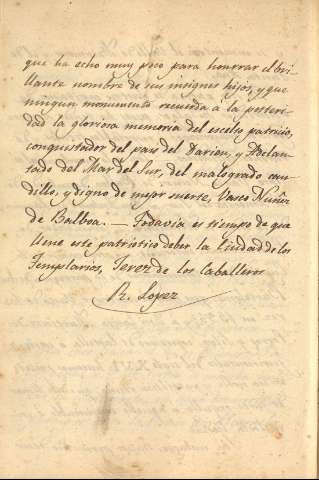 que ha echo muy poco para honrrar el bri-
llante nombre de sus insignes hijos, y que
ningun monumento recuerda á la posteri-
dad la gloriosa memoria del escelso patricio,
conquistador del pais del Darien, y Adelan-
tado del Mar del Sur, del malogrado cau-
dillo, y digno de mejor suerte, Vasco Nuñez
de Balboa. — Todavia es tiempo de que
llene este patriotico deber la Ciudad de los
Templarios, Jerez de los Caballeros
R. Lopez